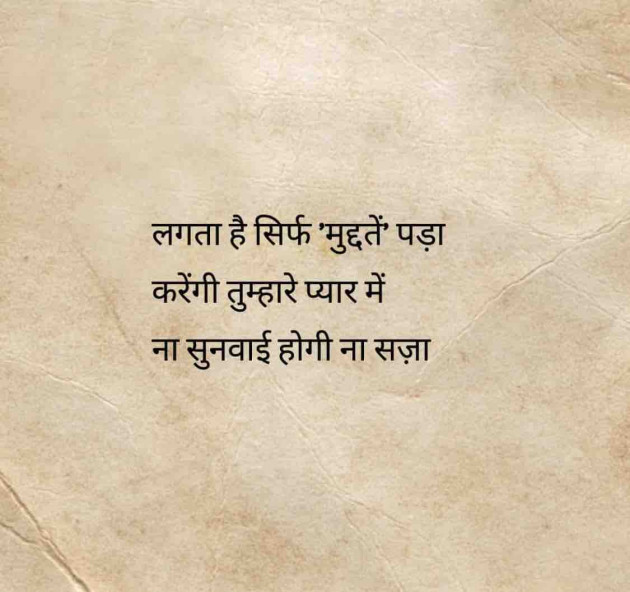 लगता है सिर्फ ’मुद्दतें’ पड़ा
करेंगी तुम्हारे प्यार में
ना सुनवाई होगी ना सज़ा